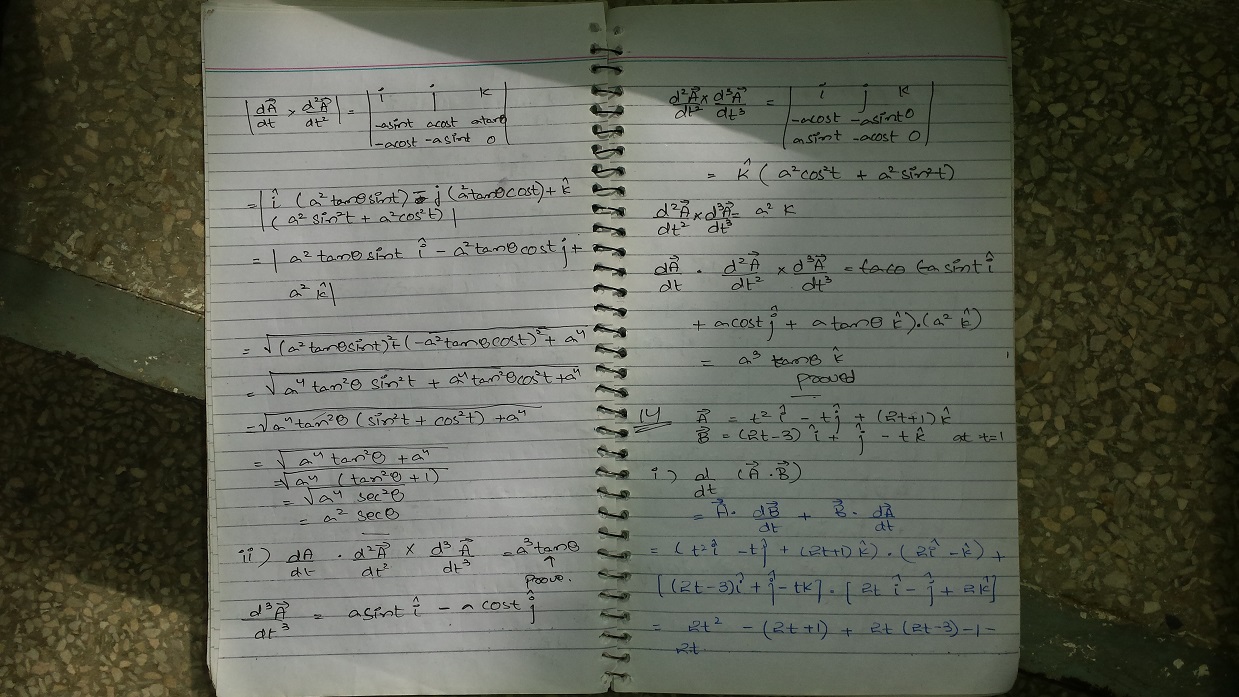 |dA⃗/dt × d²A⃗/dt²| = | i j k
-asint acost atanθ
-acost -asint 0 |
= | î (a²tanθsint) - j (a²tanθcost) + k̂
(a² sin²t + a²cos²t) |
= | a² tanθ sint î - a² tanθ cost ĵ +
a² k̂ |
= √(a² tanθsint)² + (-a² tanθcost)² + a⁴
= √a⁴ tan²θ sin²t + a⁴ tan²θcos²t + a⁴
= √a⁴ tan²θ (sin²t + cos²t) + a⁴
= √a⁴ tan²θ + a⁴
= √a⁴ (tan²θ + 1)
= √a⁴ sec²θ
= a² secθ
ii) dA/dt · d²A⃗/dt² × d³A⃗/dt³ = a³tanθ
↑
prove.
d³A⃗/dt³ = asint î - a cost ĵ
d²A⃗/dt² × d³A⃗/dt³ = | i j k
-acost -asint 0
asint -acost 0 |
= k̂ (a²cos²t + a²sin²t)
d²A⃗/dt² × d³A⃗/dt³ = a² k
dA⃗/dt · d²A⃗/dt² × d³A⃗/dt³ = (-a sint î
+ acost ĵ + a tanθ k̂).(a² k̂)
= a³ tanθ k̂
proved
14 A⃗ = t² î - tĵ + (2t+1) k̂
B⃗ = (2t-3) î + ĵ - t k̂ at t=1
i) d/dt (A⃗·B⃗)
= A⃗· dB⃗/dt + B⃗· dA⃗/dt
= (t²î - tĵ + (2t+1) k̂) · (2î - k̂) +
[(2t-3)î + ĵ - tk] · [2t î - ĵ + 2k̂]
= 2t² - (2t+1) + 2t (2t-3) -1 -
2t